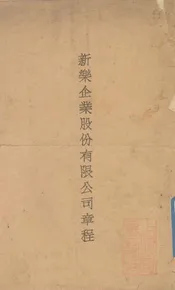 新樂企業股份有限公司章程